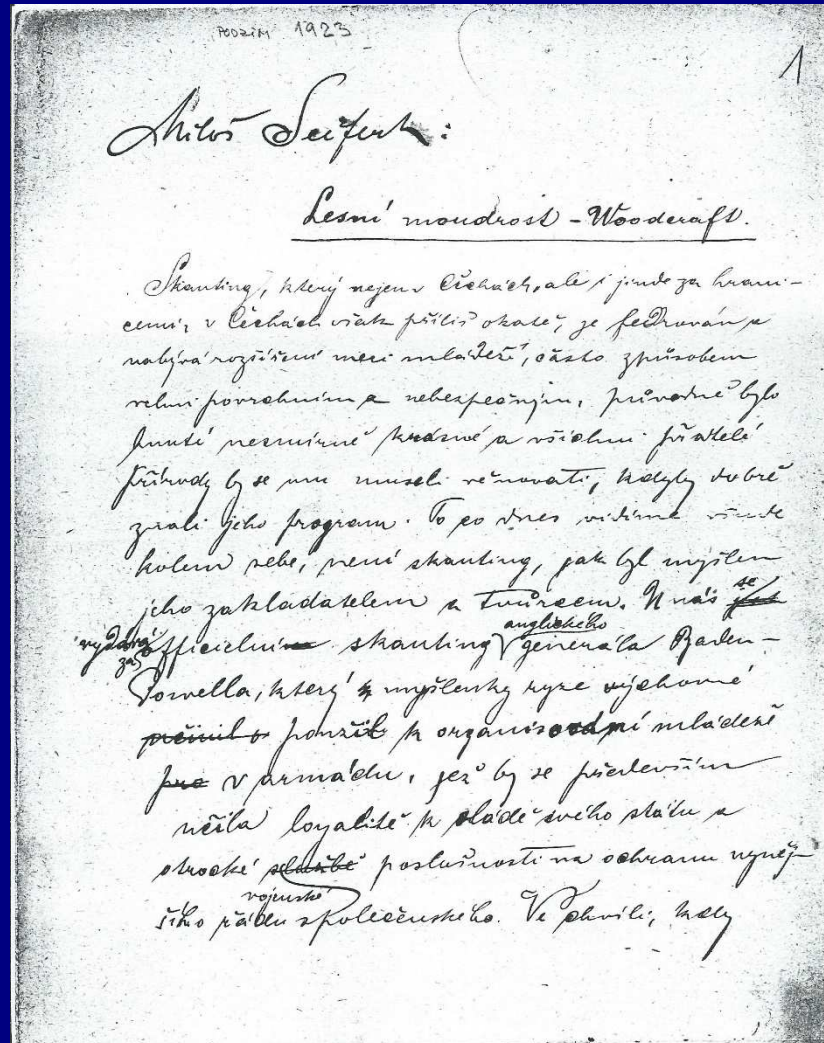 PODZIM 1923
1
Miloš Seifert:
Lesní moudrost - Woodcraft.
Skauting, který nejen v Čechách, ale i jinde za hrani-
cemi, v Čechách však příliš okatě, je fedrován a
nabývá rozšíření mezi mládeží, často způsobem
velmi povrchním a nebezpečným, původně bylo
hnutí nesmírně krásné a všichni přátelé
přírody by se mu museli věnovati, kdyby dobře
znali jeho program. To co dnes vidíme všude
kolem sebe, není skauting, jak byl myšlen
jeho zakladatelem a tvůrcem. U nás se
vydává za officielní skauting anglického generála Baden-
Powella, který myšlenky ryze výchovné
použil k organisování mládeže
v armádu, jež by se především
učila loyalitě k vládě svého státu a
otrocké vojenské poslušnosti na ochranu nyněj-
šího řádu společenského. Ve chvíli, kdy